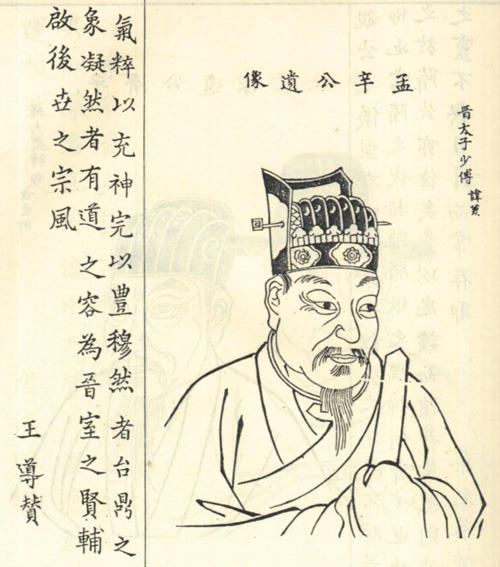 晋太子少傅 諱
孟辛公遺像
氣粹以充神完以豐穆然者台鼎之
象凝然者有道之容為晉室之賢輔
啟後世之宗風
王導賛